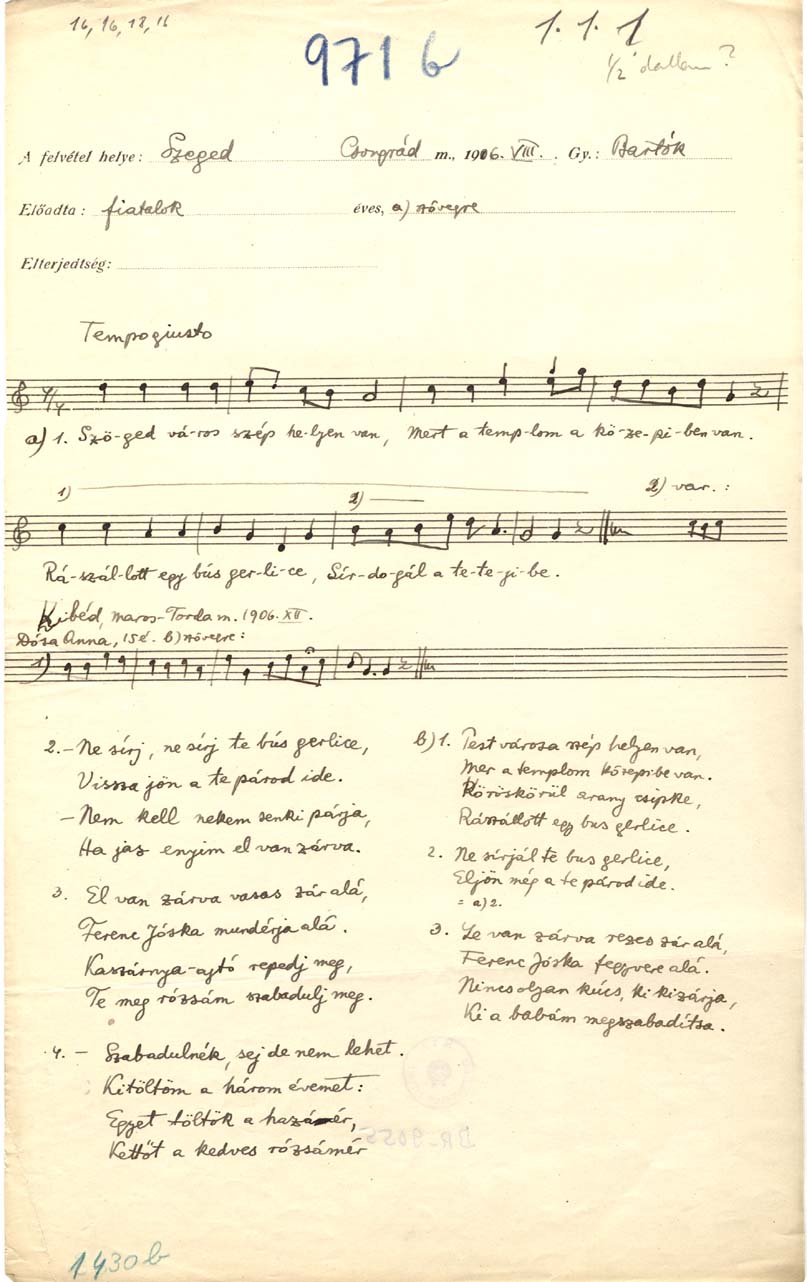 16, 16, 18, 16
971 b
1. 1. 1
1/2 dallam ?
A felvétel helye: Szeged Csongrád m., 1906. VIII. Gy.: Bartók
Előadta: fiatalok éves, a) szövegre
Elterjedtség:
Tempo giusto
4/4
a) 1. Szö-ged vá-ros szép he-lyen van, Mert a temp-lom a kö-ze-pi-ben van.
1) 2) 2) var.:
Rá-szál-lott egy bús ger-li-ce, Sír-do-gál a te-te-ji-be.
Kibéd, Maros-Torda m. 1906. XII.
Dósa Anna, 15 é. b) szövegre:
1)
2. – Ne sírj, ne sírj te bús gerlice,
Vissza jön a te párod ide.
– Nem kell nekem senki párja,
Ha jaz enyim el van zárva.
3. El van zárva vasas zár alá,
Ferenc Jóska mundérja alá.
Kaszárnya-ajtó repedj meg,
Te meg rózsám szabadulj meg.
4. – Szabadulnék, sej de nem lehet.
Kitöltöm a három évemet:
Egyet töltök a hazámér,
Kettőt a kedves rózsámér
b) 1. Pest városa szép helyen van,
Mer a templom közepibe van.
Köröskörül arany csipke,
Rászállott egy bus gerlice.
2. Ne sírjál te bus gerlice,
Eljön még a te párod ide.
= a) 2.
3. Le van zárva rezes zár alá,
Ferenc Jóska fegyvere alá.
Nincs olyan kúcs, ki kizárja,
Ki a babám megszabadítsa.
BR-9055
1430 b